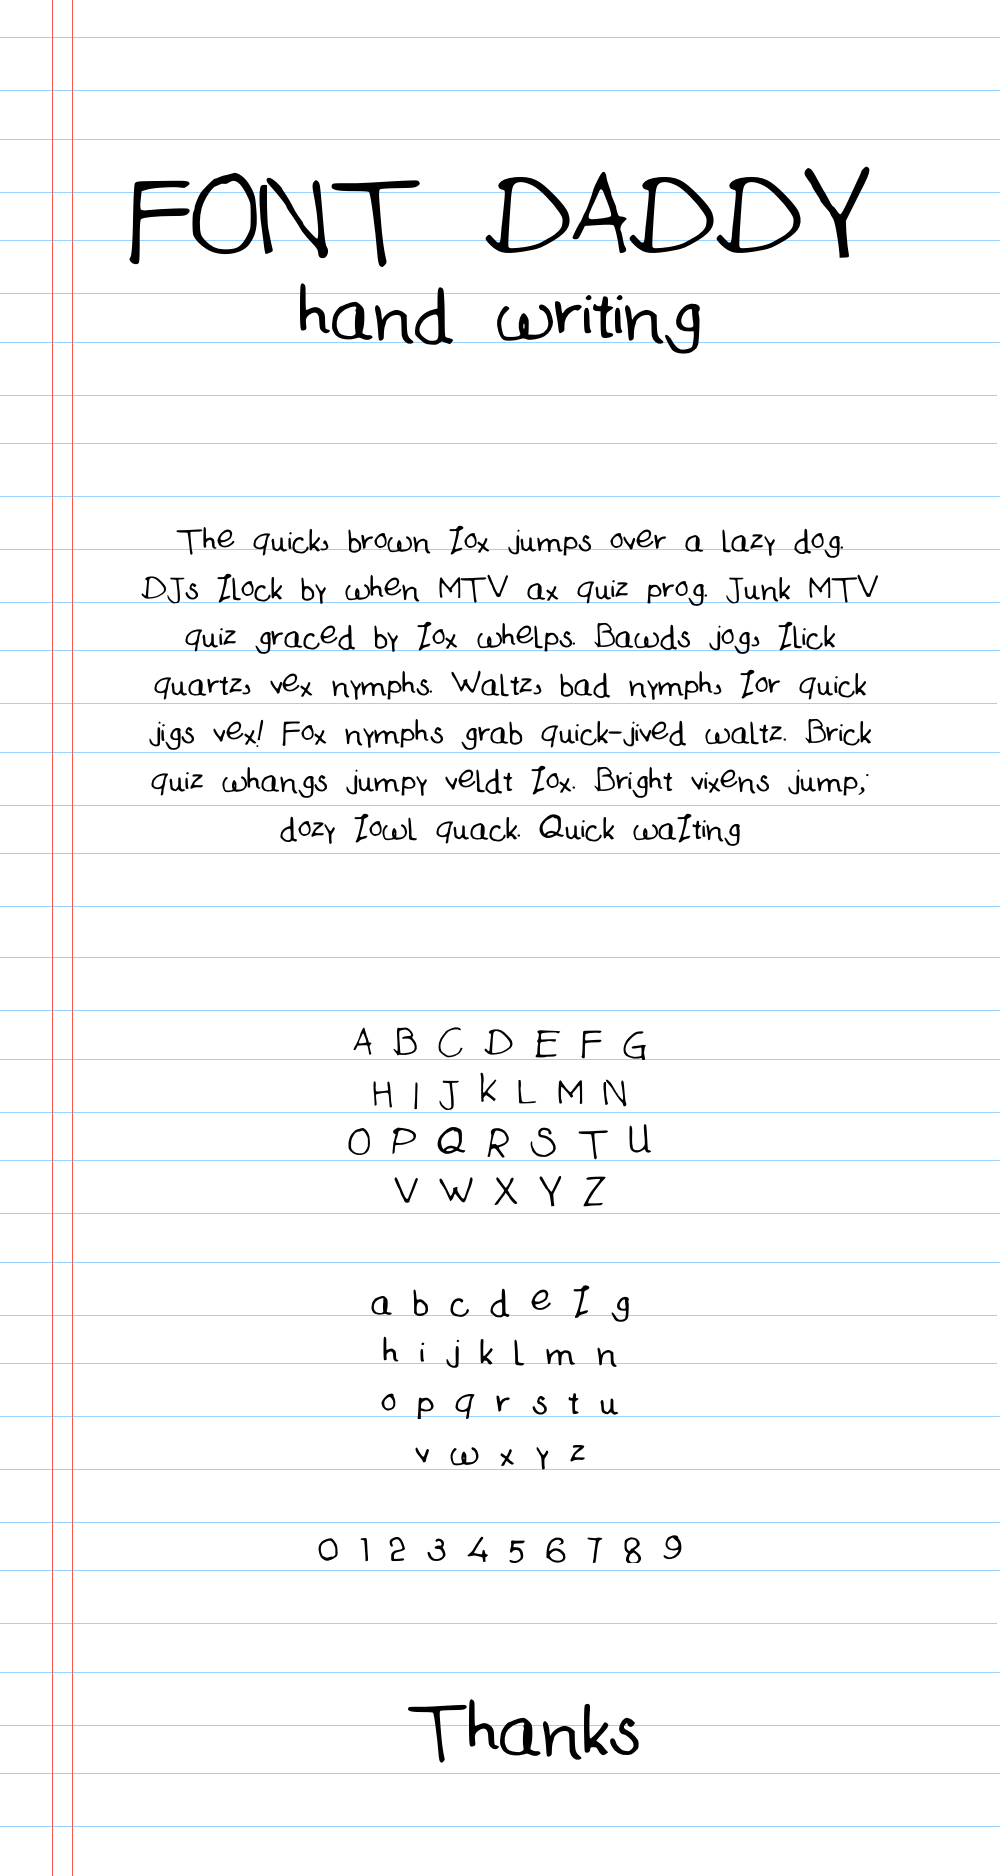 FONT DADDY
hand writing
The quick, brown fox jumps over a lazy dog.
DJs flock by when MTV ax quiz prog. Junk MTV
quiz graced by fox whelps. Bawds jog, flick
quartz, vex nymphs. Waltz, bad nymph, for quick
jigs vex! Fox nymphs grab quick-jived waltz. Brick
quiz whangs jumpy veldt fox. Bright vixens jump;
dozy fowl quack. Quick wafting
A B C D E F G
H I J K L M N
O P Q R S T U
V W X Y Z
a b c d e f g
h i j k l m n
o p q r s t u
v w x y z
0 1 2 3 4 5 6 7 8 9
Thanks